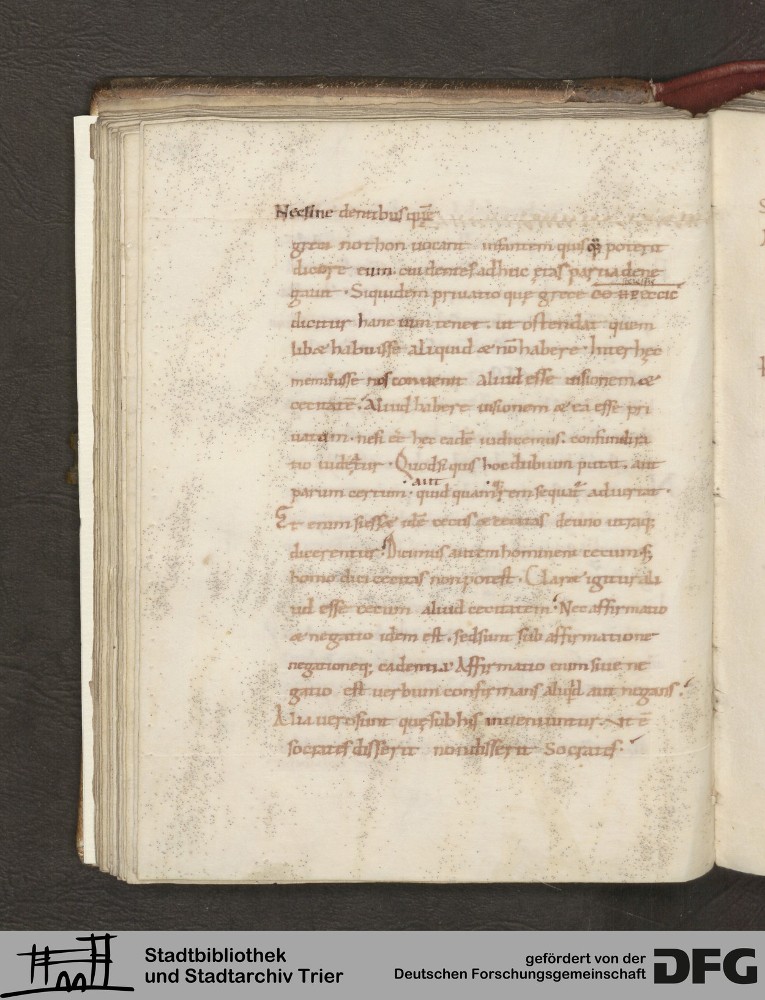 Nec sine dentibus quę̄
greci nothon uocant infantem quisq̄ poterit
dicere eum cui dentes adhuc ętas parua dene
gauit. Siquidem priuatio quę grece
dicitur hanc uim tenet. ut ostendat quem
libæ habuisse aliquid æ nō habere. Inter hęc
meminisse nos conuenit aliud esse uisionem æ
cecitatē. Aliud habere uisionem æ ea esse pri
uatum. nesi cū hęc eadē iudicemus. confundi ra
tio uidetur. Quodsi quis hoc dubium putat. aut
aut
parum certum. quid quam rem sequat aduertat.
Et enim si essæ idē cecus æ cecitas de uno utraq;
dicerentur. Dicimus autem hominem cecum. s;
homo dici cecitas non potest. Claræ igitur ali
ud esse cecum aliud cecitatem. Nec affirmatio
æ negatio idem est. sed sunt sub affirmatione
negationeq; eadem Affirmatio enim siue ne
gatio est uerbum confirmans aliqd aut negans.
Alia uero sunt quę sub his inueniuntur. Vt ē
socrates disserit non disserit Socrates.
Stadtbibliothek
und Stadtarchiv Trier
gefördert von der
Deutschen Forschungsgemeinschaft
DFG